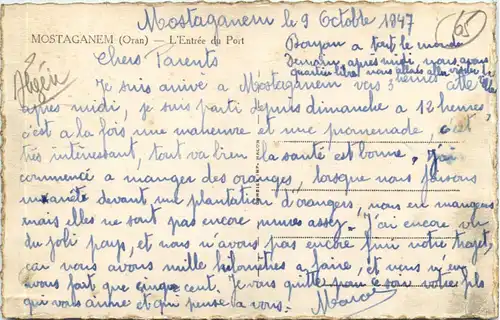 Mostaganem le 9 Octobre 1947
65
MOSTAGANEM (Oran) — L'Entrée du Port
Bonjour a tout le monde
Demain après midi, nous avons
quartier libre nous allons aller visiter la
ville
Algérie
Chers Parents
Je suis arrivé a Mostaganem vers 3 heures cette
après midi, je suis parti depuis dimanche a 12 heures,
c'est a la fois, une maneuvre et une promenade, c'est
très intéressant, tout va bien la santé est bonne, j'ai
commencé a manger des oranges, lorsque nous faisons
un arrête devant une plantation d'orangers, nous en mangeons
mais elles ne sont pas encore mures assez. J'ai encore vu
du joli pays, et nous n'avons pas encore fini notre trajet,
car nous avons mille kilomètres a faire, et nous n'en
avons fait que cinq cent. Je vous quitte pour ce soir votre fils
qui vous aime et qui pense a vous. Marcel